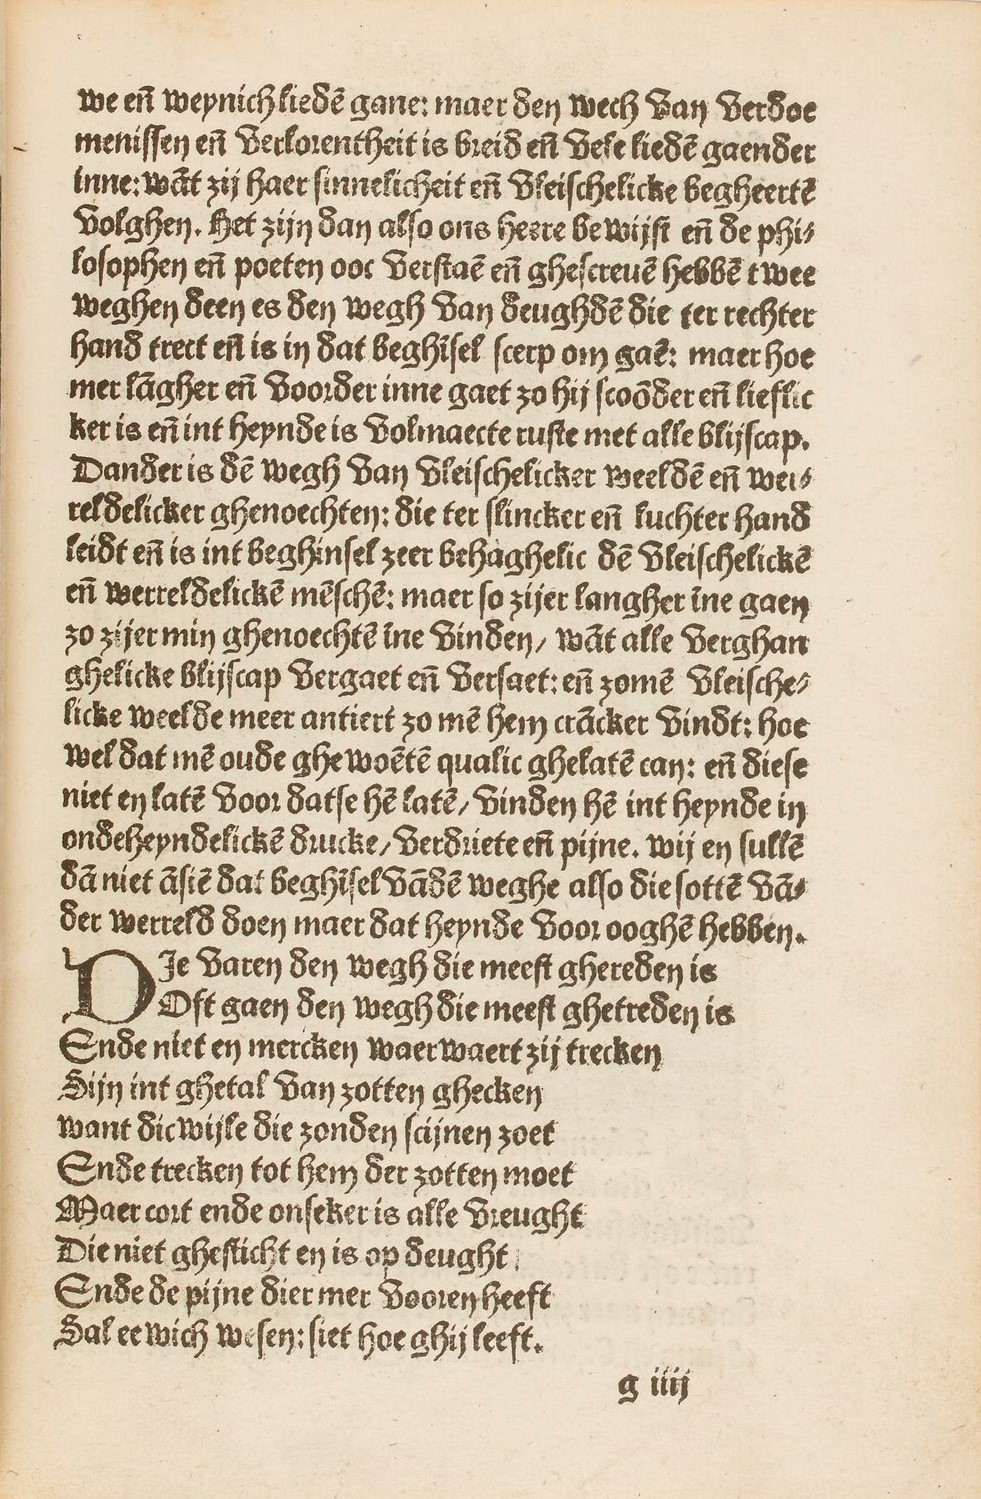 we en̄ weynich liedē gane: maer den wech van verdoe
menissen en̄ verlorentheit is breid en̄ vele liedē gaender
inne: wāt zij haer sinnelicheit en̄ vleischelicke begheertē
volghen. Het zijn dan also ons heere bewijst en̄ de phi⸗
losophen en̄ poeten ooc verstaē en̄ ghescreuē hebbē twee
weghen deen es den wegh van deughdē die ter rechter
hand trect en̄ is in dat beghīsel scerp om gaē: maer hoe
mer lāgher en̄ voorder inne gaet zo hij scoōder en̄ lieflic
ker is en̄ int heynde is volmaecte ruste met alle blijscap.
Dander is dē wegh van vleischelicker weeldē en̄ wei⸗
reldelicker ghenoechten: die ter slincker en̄ luchter hand
leidt en̄ is int beghinsel zeer behaghelic dē vleischelickē
en̄ werreldelickē mēschē: maer so zijer langher īne gaen
zo zijer min ghenoechtē īne vinden/ wāt alle verghan
ghelicke blijscap vergaet en̄ versaet: en̄ zomē vleische⸗
licke weelde meer antiert zo mē hem crācker vindt: hoe
wel dat mē oude ghewoētē qualic ghelatē can: en̄ diese
niet en latē voor datse hē latē/ vinden hē int heynde in
ondeheyndelickē drucke/ verdriete en̄ pijne. wij en sullē
dā niet āsiē dat beghīsel vādē weghe also die sottē vā⸗
der werreld doen maer dat heynde voor ooghē hebben.
DIe varen den wegh die meest ghereden is
Oft gaen den wegh die meest ghetreden is
Ende niet en mercken waerwaert zij trecken
Sijn int ghetal van zotten ghecken
want dicwijle die zonden scijnen zoet
Ende trecken tot hem der zotten moet
Maer cort ende onseker is alle vreught
Die niet ghesticht en is op deught
Ende de pijne dier mer vooren heeft
Sal eewich wesen: siet hoe ghij leeft.
g iiij